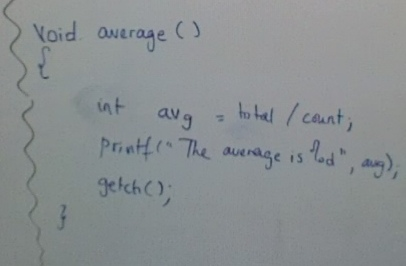 void average ()
{
int avg = total / count;
printf(" The average is %d", avg);
getch();
}